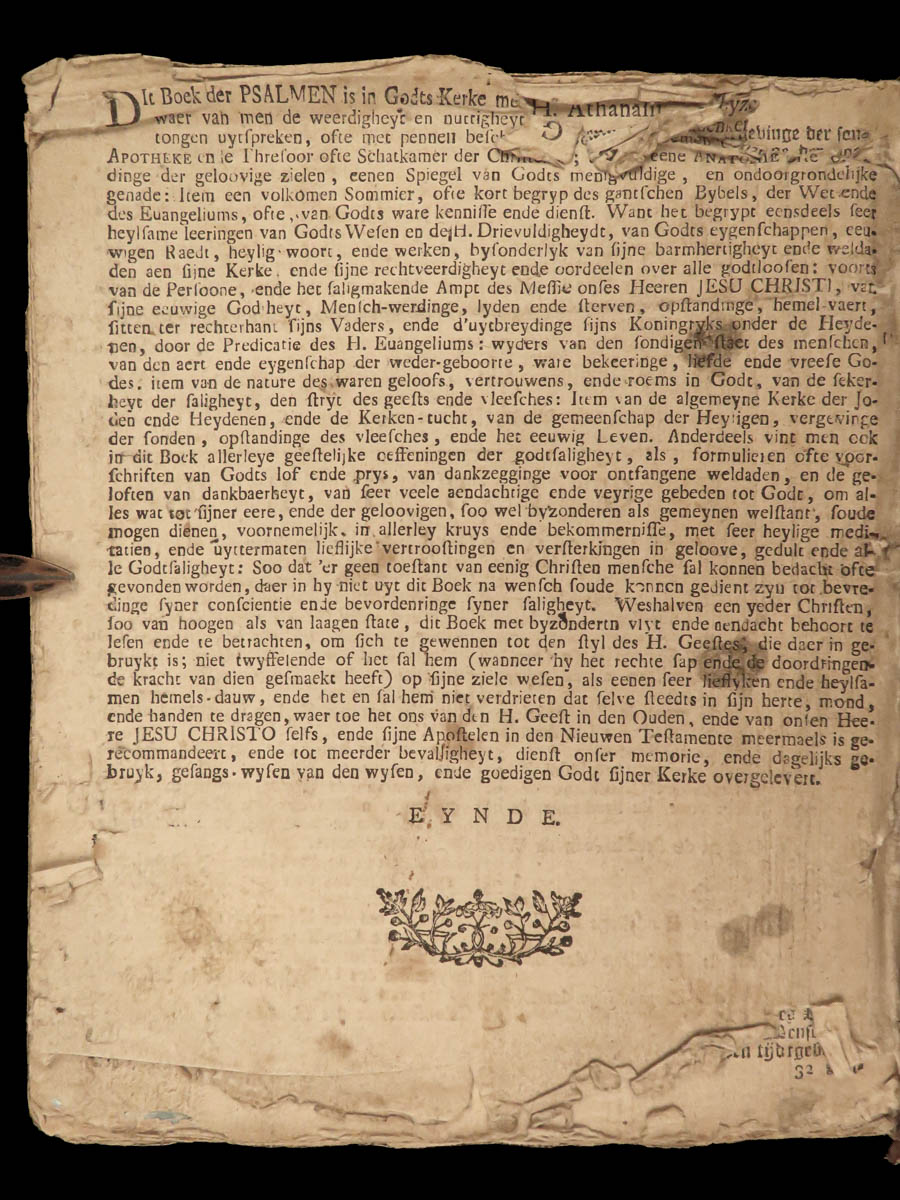 DIt Boek der PSALMEN is in Godts Kerke
waer van men de weerdigheyt en nuttigheyt
H. Athanasi
tongen uytſpreken, ofte met pennen
APOTHEKE en ie Threſoor ofte Schatkamer der eene
dinge der geloovige zielen, eenen Spiegel van Godts menigvuldige, en ondoorgrondelijke
genade: Item een volkomen Sommier, ofte kort begryp des gantſchen Bybels, der Wet ende
des Euangeliums, ofte, van Godts ware kenniſſe ende dienſt. Want het begrypt eensdeels ſeer
heylſame leeringen van Godts Weſen en de H. Drievuldigheydt, van Godts eygenſchappen, eeu-
wigen Raedt, heylig woort, ende werken, byſonderlyk van ſijne barmhertigheyt ende welda-
den aen ſijne Kerke, ende ſijne rechtveerdigheyt ende oordeelen over alle godtlooſen: voorts
van de Perſoone, ende het ſaligmakende Ampt des Meſſie onſes Heeren JESU CHRISTI, van
ſijne eeuwige Godheyt, Menſch-werdinge, lyden ende ſterven, opſtandinge, hemel-vaert,
ſitten ter rechterhant ſijns Vaders, ende d'uytbreydinge ſijns Koningryks onder de Heyde-
nen, door de Predicatie des H. Euangeliums: wyders van den ſondigen ſtaet des menſchen,
van den aert ende eygenſchap der weder-geboorte, ware bekeeringe, liefde ende vreeſe Go-
des: item van de nature des waren geloofs, vertrouwens, ende roems in Godt, van de ſeker-
heyt der ſaligheyt, den ſtryt des geeſts ende vleeſches: Item van de algemeyne Kerke der Jo-
den ende Heydenen, ende de Kerken-tucht, van de gemeenſchap der Heyligen, vergevinge
der ſonden, opſtandinge des vleeſches, ende het eeuwig Leven. Anderdeels vint men ook
in dit Boek allerleye geeſtelijke oeffeningen der godtſaligheyt, als, formulieren ofte voor-
ſchriften van Godts lof ende prys, van dankzegginge voor ontfangene weldaden, en de ge-
loften van dankbaerheyt, van ſeer veele aendachtige ende veyrige gebeden tot Godt, om al-
les wat tot ſijner eere, ende der geloovigen, ſoo wel byzonderen als gemeynen welſtant, ſoude
mogen dienen, voornemelijk in allerley kruys ende bekommerniſſe, met ſeer heylige medi-
tatien, ende uyttermaten lieflijke vertrooſtingen en verſterkingen in geloove, gedult ende al-
le Godtſaligheyt: Soo dat 'er geen toeſtant van eenig Chriſten menſche ſal konnen bedacht ofte
gevonden worden, daer in hy niet uyt dit Boek na wenſch ſoude konnen gedient zyn tot bevre-
dinge ſyner conſcientie ende bevordenringe ſyner ſaligheyt. Weshalven een yeder Chriſten,
ſoo van hoogen als van laagen ſtate, dit Boek met byzonderen vlyt ende aendacht behoort te
leſen ende te betrachten, om ſich te gewennen tot den ſtyl des H. Geeſtes, die daer in ge-
bruykt is; niet twyffelende of het ſal hem (wanneer hy het rechte ſap ende de doordringen-
de kracht van dien geſmaekt heeft) op ſijne ziele weſen, als eenen ſeer lieflyken ende heylſa-
men hemels-dauw, ende het en ſal hem niet verdrieten dat ſelve ſteedts in ſijn herte, mond,
ende handen te dragen, waer toe het ons van den H. Geeſt in den Ouden, ende van onſen Hee-
re JESU CHRISTO ſelfs, ende ſijne Apoſtelen in den Nieuwen Teſtamente meermaels is ge-
recommandeert, ende tot meerder bevalligheyt, dienſt onſer memorie, ende dagelijks ge-
bruyk, geſangs-wyſen van den wyſen, ende goedigen Godt ſijner Kerke overgelevert.
EYNDE.